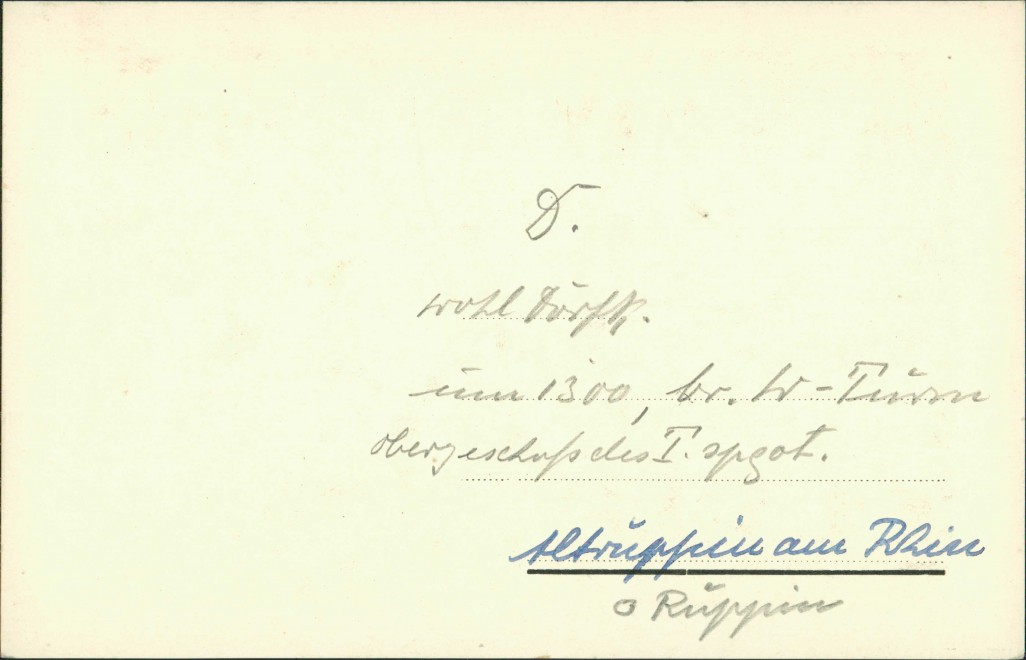 D.
wohl Dorfk.
um 1300, br. W-Turm
obergeschoß des T. spgot.
Altruppin am Rhin
o Ruppin